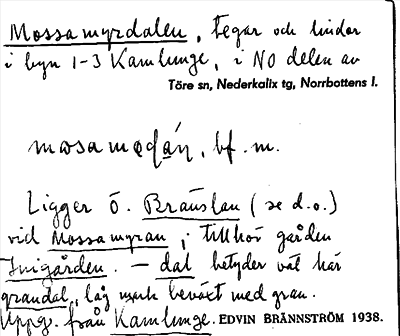 Mossamyrdalen, tegar och lindor
i byn 1-3 Kamlunge, i NO delen av
Töre sn, Nederkalix tg, Norrbottens l.
bf. m.
Ligger ö. Bränslan (se d.o.)
vid Mossamyran, tillhör gården
Inigården. — dal betyder väl här
grandal, låg mark beväxt med gran.
Uppg. från Kamlunge. EDVIN BRÄNNSTRÖM 1938.